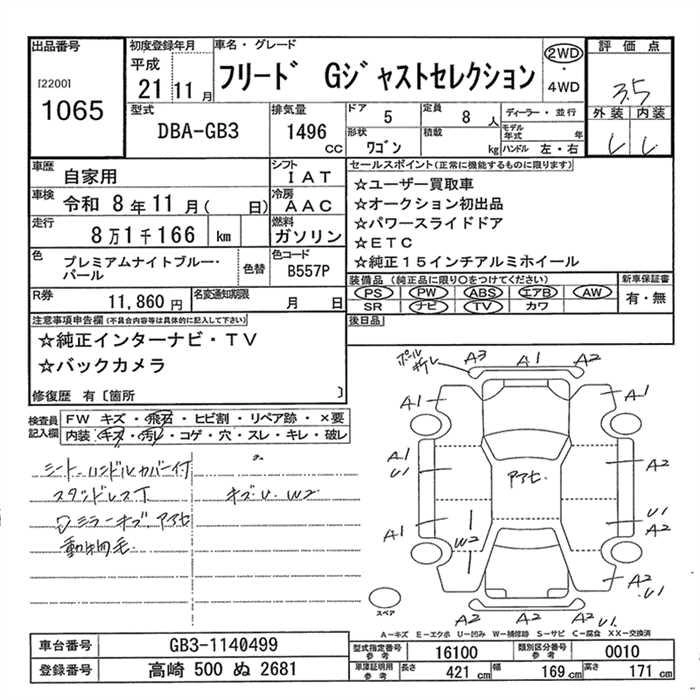 出品番号
[2200]
1065
初度登録年月
平成
21 11月
車名・グレード
フリード Gジャストセレクション
2WD
・
4WD
評価点
3.5
外装 内装
型式
DBA-GB3
排気量
1496 cc
ドア 5
定員 8 人
形状 ワゴン
積載 kg
ディーラー・並行
モデル年式 年
ハンドル 左・右
車歴 自家用
シフト IAT
車検 令和 8年11月( 日)
冷房 AAC
走行 8万1千166 km
燃料 ガソリン
色 プレミアムナイトブルー・パール
色替
色コード B557P
R券 11,860円
名変通知期限 月 日
セールスポイント(正常に機能するものに限ります)
☆ユーザー買取車
☆オークション初出品
☆パワースライドドア
☆ETC
☆純正15インチアルミホイール
装備品(純正品に限り○をつけてください)
PS PW ABS エアB AW
SR ナビ TV カワ
新車保証書
有・無
後日品
注意事項申告欄(不具合内容等は具体的に記入して下さい)
☆純正インターナビ・TV
☆バックカメラ
修復歴 有〔箇所 〕
検査員記入欄
FW キズ・飛石・ヒビ割・リペア跡・×要
内装・キズ・汚レ・コゲ・穴・スレ・キレ・破レ
シート、ハンドルカバー付
スタッドレスT
キズU.W2
ワミラーキズ.アアセ
動物毛
ポールサビレ
A3 A1 A2
A1 A1
A1 U1 アアセ. A2
A1 W2 U1 A2
A2 A2 A2 U1.
スペア
A-キズ E-エクボ U-凹み W-補修跡 S-サビ C-腐食 XX-交換済
車台番号 GB3-1140499
登録番号 高崎 500 ぬ 2681
型式指定番号 参考 16100
類別区分番号 参考 0010
車庫証明用 参考 長さ 421 cm 幅 169 cm 高さ 171 cm